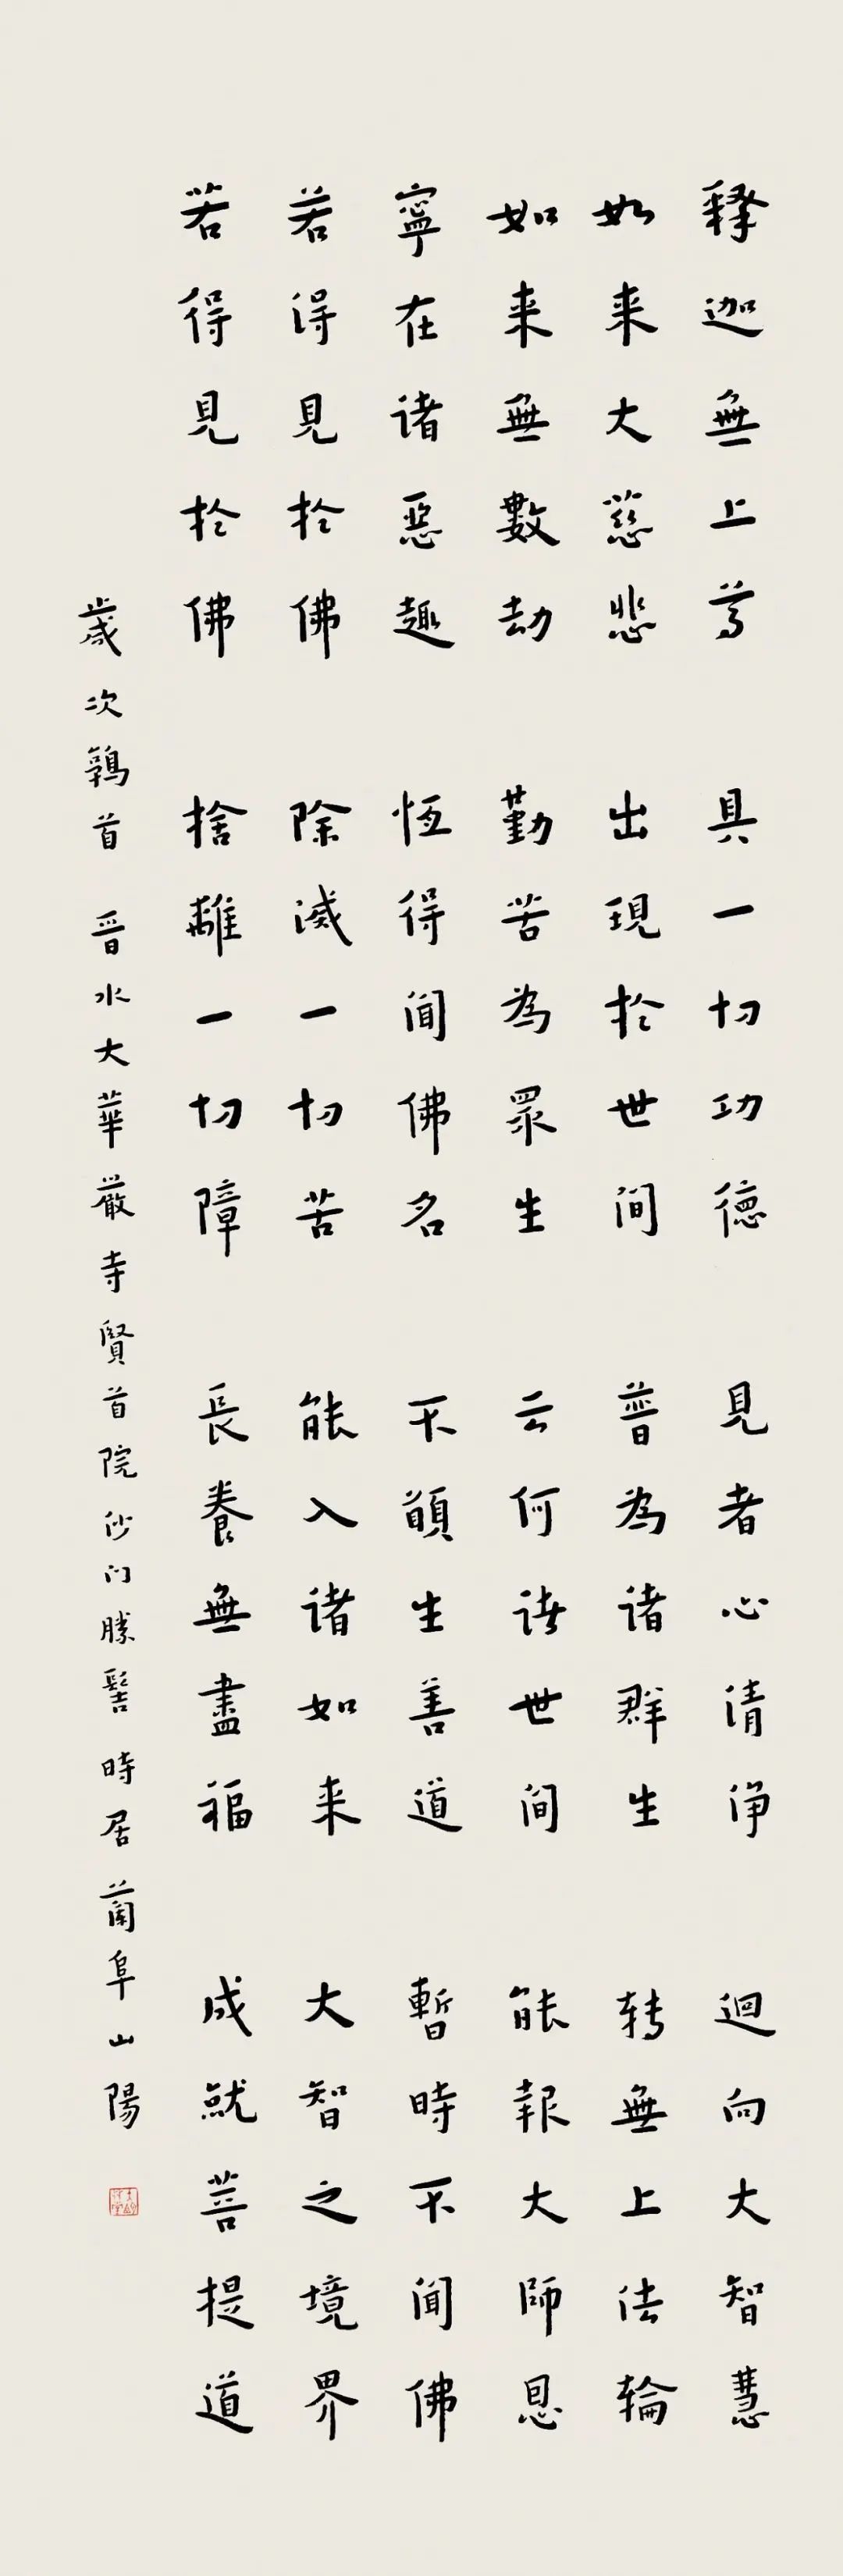 释迦無上尊 具一切功德 見者心清淨 迴向大智慧
如来大慈悲 出現於世间 普為诸群生 转無上法輪
如来無數劫 勤苦為眾生 云何诸世间 能報大師恩
寧在诸惡趣 恆得闻佛名 不願生善道 暫時不闻佛
若得見於佛 除滅一切苦 能入诸如来 大智之境界
若得見於佛 捨離一切障 長養無盡福 成就菩提道
歲次鶉首 晉水大華嚴寺賢首院沙门勝髻 時居蘭阜山陽